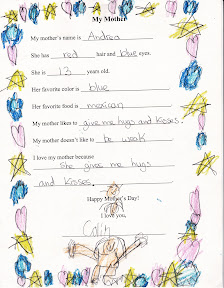 My Mother
My mother's name is Andrea
She has red hair and blue eyes.
She is 13 years old.
Her favorite color is blue
Her favorite food is mexican
My mother likes to give me hugs and kisses.
My mother doesn't like to be weak
I love my mother because
She gives me hugs
and kisses.
Happy Mother's Day!
I love you,
Colin